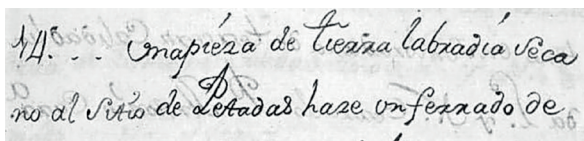 14.. . Unapiéza de tierra labradiá seca
no al sitio de Petadas haze un ferrado de